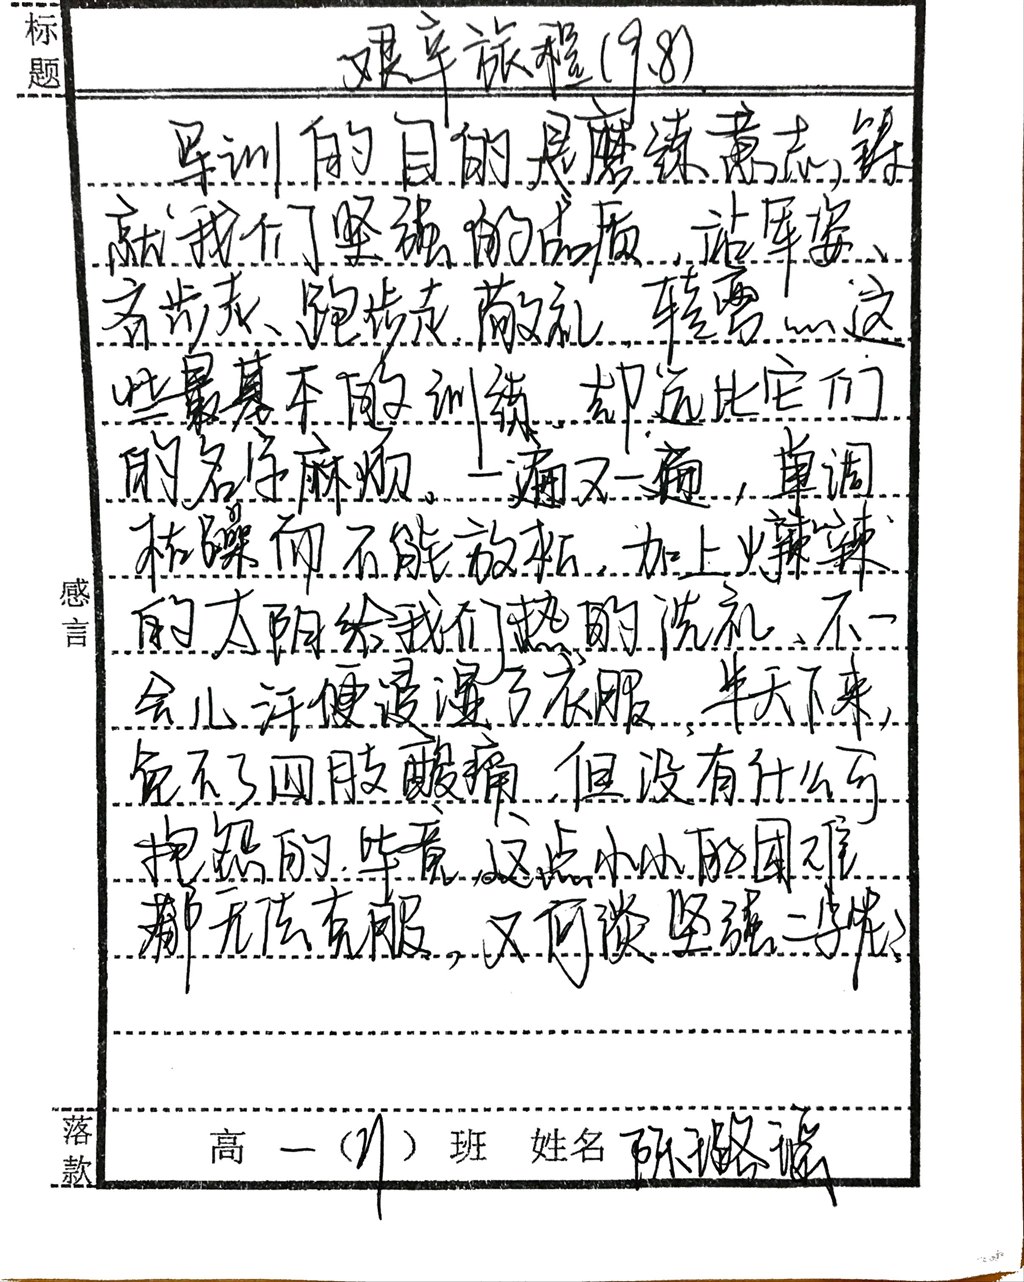 标题
艰辛旅程(9.8)
军训的目的是磨练意志,铸
就我们坚强的品质。站军姿、
齐步走、跑步走、敬礼、转弯……这
些最基本的训练,却远比它们
的名字麻烦。一遍又一遍,单调
枯燥而不能放松。加上火辣辣
的太阳给我们热的洗礼、不一
会儿汗便浸湿了衣服。半天下来,
免不了四肢酸痛,但没有什么可
抱怨的。毕竟,这点小小的困难
都无法克服,又何谈坚强二字呢?
感言
落款
高一( )班 姓名 陈璐瑶